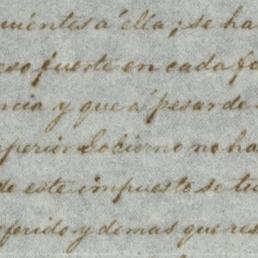 uientes á ella; se ha
eso fuerte en cada fa
ncia y que á pesar de
uperior Gobierno no ha
de este impuesto se tu
eferido y demas que res